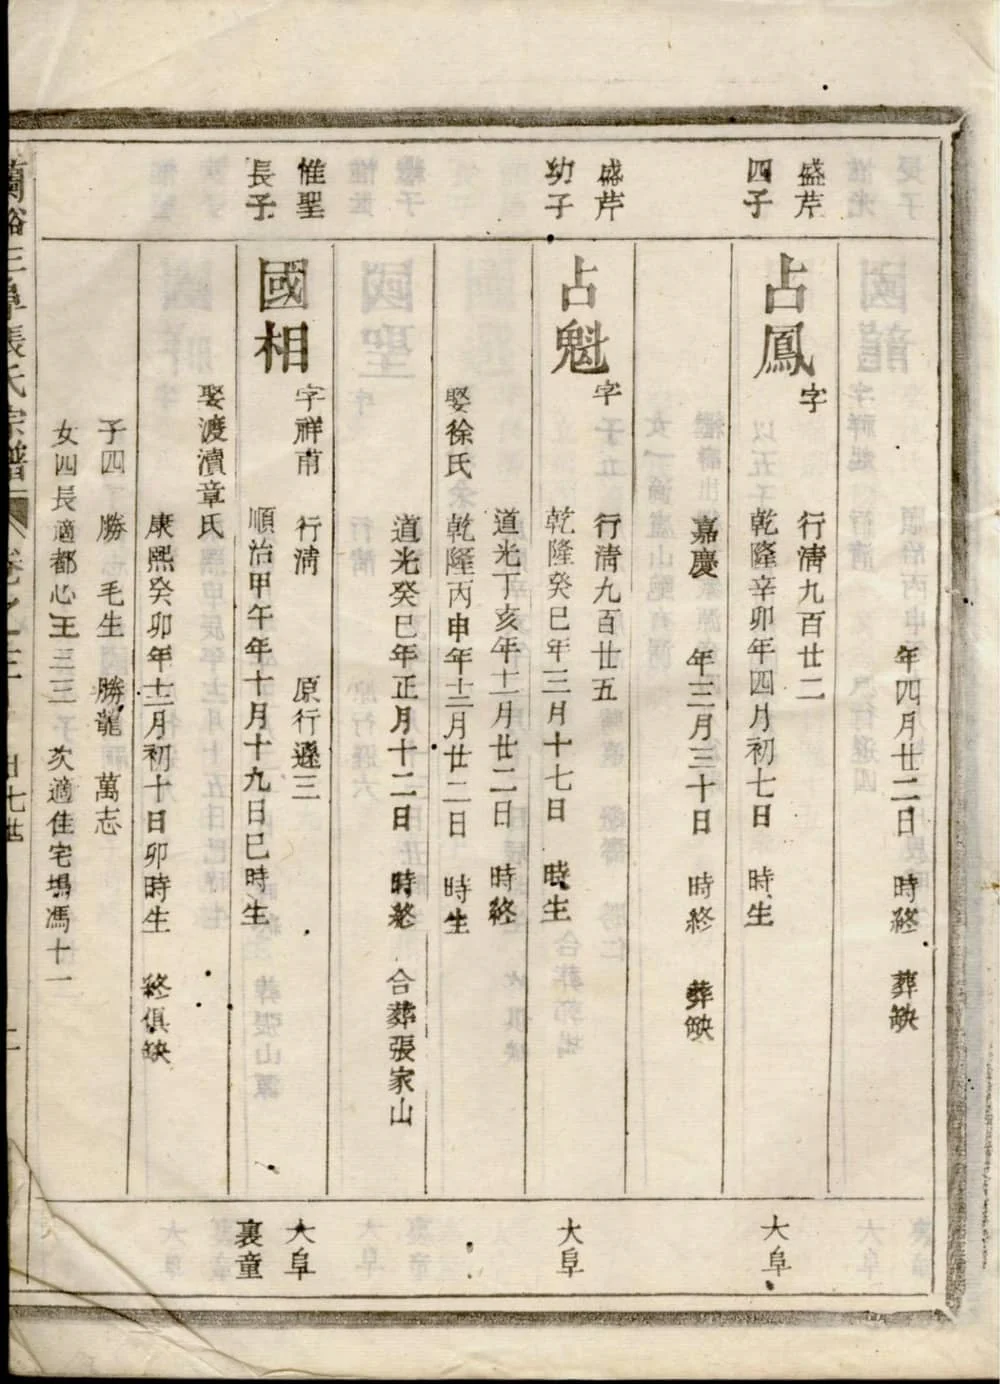 年四月廿二日　時終　葬缺
盛芹
四子
占鳳
字　行淸九百廿二
乾隆辛卯年四月初七日　時生
嘉慶　年三月三十日　時終　葬缺
大阜
盛芹
幼子
占魁
字　行淸九百廿五
乾隆癸巳年三月十七日　時生
道光丁亥年十一月廿二日　時終
娶徐氏　乾隆丙申年十二月廿二日　時生
道光癸巳年正月十二日　時終　合葬張家山
大阜
惟聖
長子
國相
字祥甫　行淸　原行遜三
順治甲午年十月十九日巳時生
娶渡瀆章氏
康熙癸卯年十二月初十日卯時生　終俱缺
子四　勝　毛生　勝龍　萬志
女四長適都心王三三　次適佳宅塢馮十一
大阜
裏童
阜張氏宗譜　卷之　七世